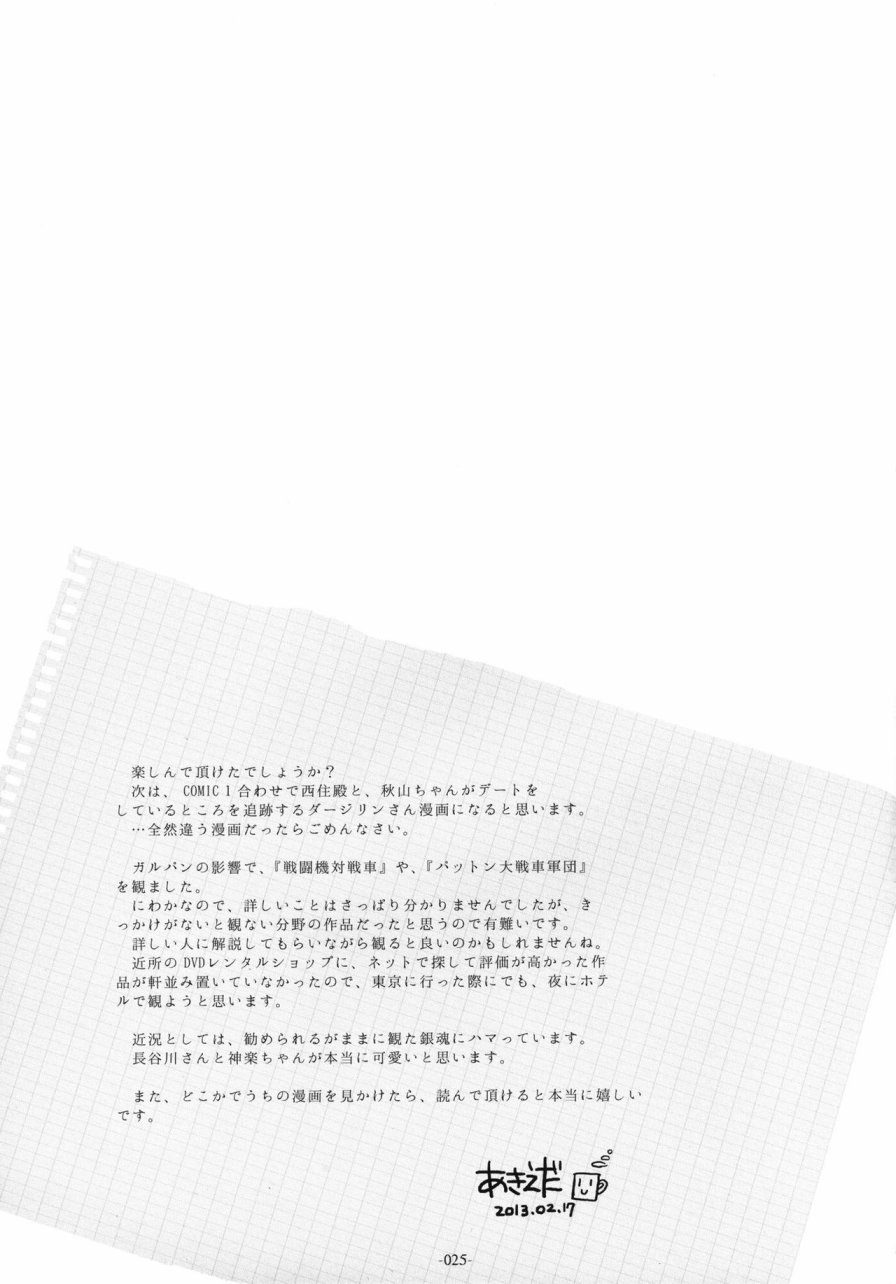 楽しんで頂けたでしょうか？
次は、COMIC1合わせで西住殿と、秋山ちゃんがデートを
しているところを追跡するダージリンさん漫画になると思います。
…全然違う漫画だったらごめんなさい。
ガルパンの影響で、『戦闘機対戦車』や、『パットン大戦車軍団』
を観ました。
にわかなので、詳しいことはさっぱり分かりませんでしたが、き
っかけがないと観ない分野の作品だったと思うので有難いです。
詳しい人に解説してもらいながら観ると良いのかもしれませんね。
近所のDVDレンタルショップに、ネットで探して評価が高かった作
品が軒並み置いていなかったので、東京に行った際にでも、夜にホテ
ルで観ようと思います。
近況としては、勧められるがままに観た銀魂にハマっています。
長谷川さんと神楽ちゃんが本当に可愛いと思います。
また、どこかでうちの漫画を見かけたら、読んで頂けると本当に嬉しい
です。
あきえだ
2013.02.17
-025-